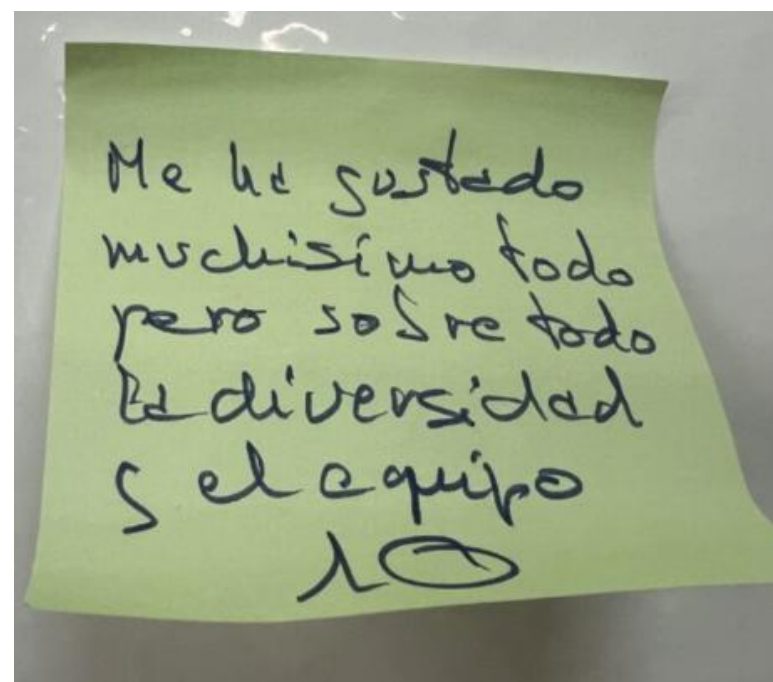 Me ha gustado
muchisimo todo
pero sobre todo
la diversidad
y el equipo
10